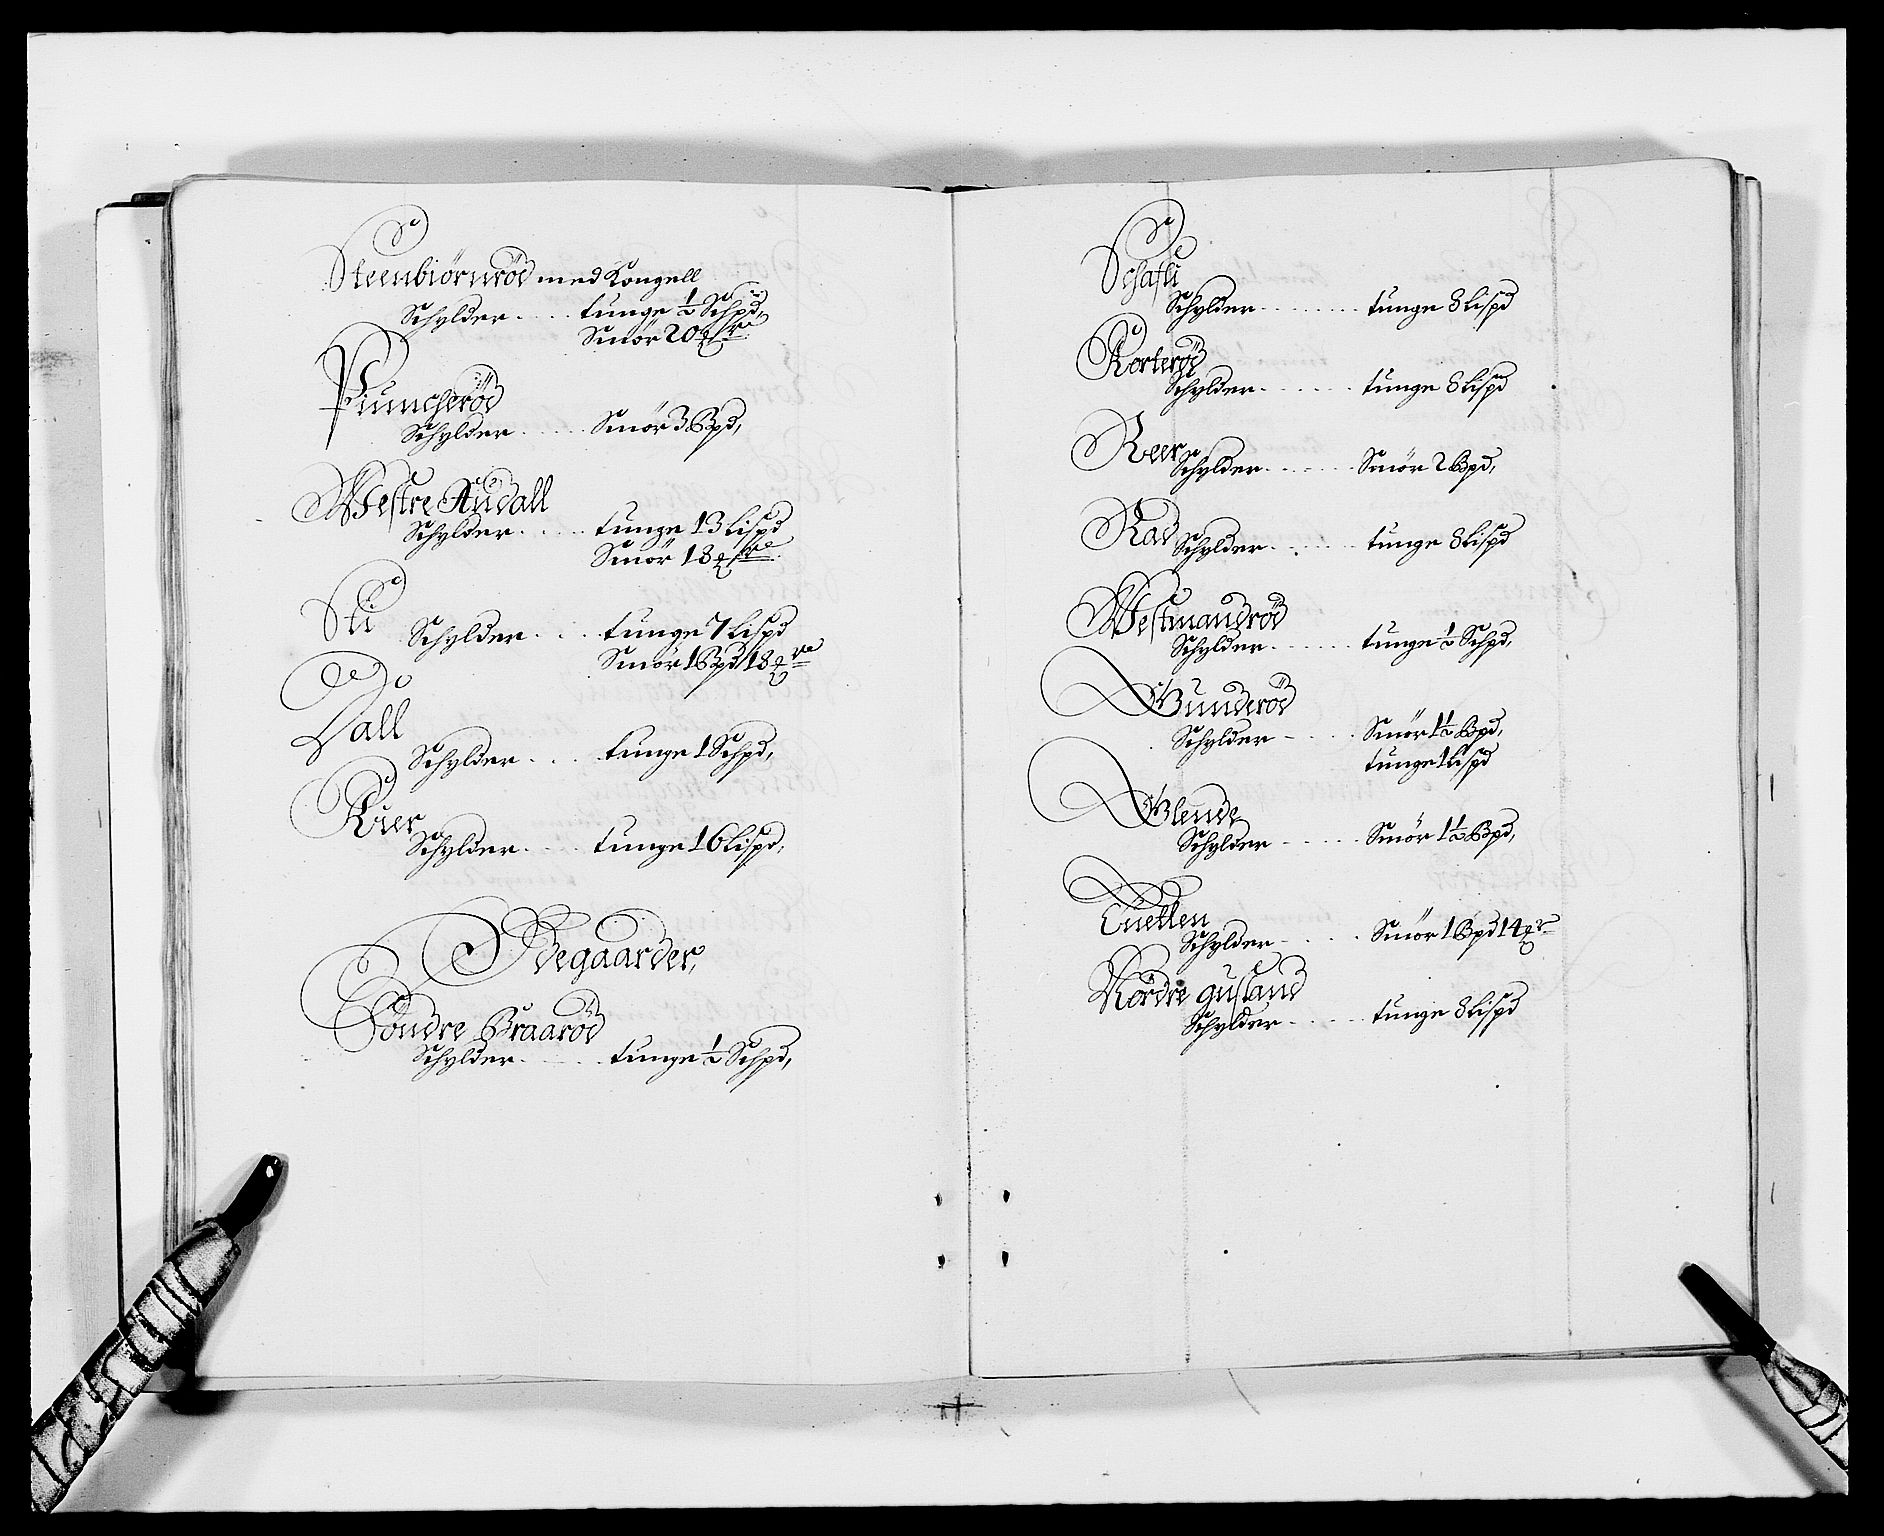 Steenbiörnröd med Kongell
Schylder . . . . tunge ½ Schpd,
Smör 20 ℔
Piuncheröd
Schylder . . . . . Smör 3 Bpd,
Westre Audall
Schylder . . . . . tunge 13 Lispd
Smör 18 ℔
Sti
Schylder . . . . tunge 7 Lispd
Smör 1 Bpd 18 ℔
Dall
Schylder . . . . tunge 1 Schpd,
Kier
Schylder . . . . tunge 16 Lispd,
Ødegaarder,
Söndre Braaröd
Schylder . . . . . tunge ½ Schpd,
Schafti
Schylder . . . . . . . . tunge 8 Lispd
Korteröd
Schylder . . . . . . tunge 8 Lispd
Reer
Schylder . . . . . . Smör 2 Bpd,
Rad
Schylder . . . . . . tunge 8 Lispd
Westmandröd
Schylder . . . . . . tunge ½ Schpd,
Gunderöd
Schylder - . . . Smör 1½ Bpd,
tunge 1 Lispd
Glende
Schylder - . . . . Smör 1½ Bpd,
Tuetten
Schylder - . . . Smör 1 Bpd 14 ℔
Nordre gusland
Schylder . . . . . tunge 8 Lispd